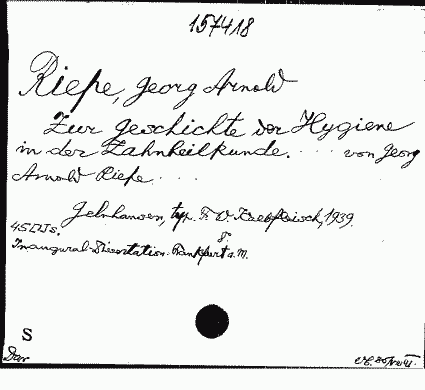 157418
Riepe, Georg Arnold
Zur Geschichte der Hygiene
in der Zahnheilkunde. . . . von Georg
Arnold Riepe. . .
Gelnhausen, typ. F. W. Kalbfleisch, 1939.
45 S.
Inaugural-Dissertation. Frankfurt a. M.
S